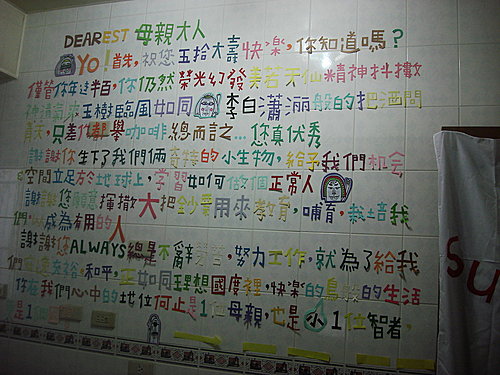 DEAREST 母親大人
YO! 首先,祝您五拾大壽快樂,你知道嗎?
僅管你年過半百,你仍然榮光幻發美若天仙精神抖擻
神清氣爽玉樹臨風如同李白瀟洒般的把酒問
青天,只差代舉咖啡總而言之...您真优秀
謝謝你生下了我們倆奇特的小生物,給予我們机会
空間立足於地球上,學習如何做個正常人
謝謝您願意揮撒大把金鈔票用來教育,哺育,栽培我
們,成為有用的人
謝謝您ALWAYS總是不辭勞苦,努力工作,就為了給我
們和平,正如同理想國度裡,快樂的鳥般的生活
你在我們心中的地位何止是1位母親,也是小1位智者,
是1個
Su